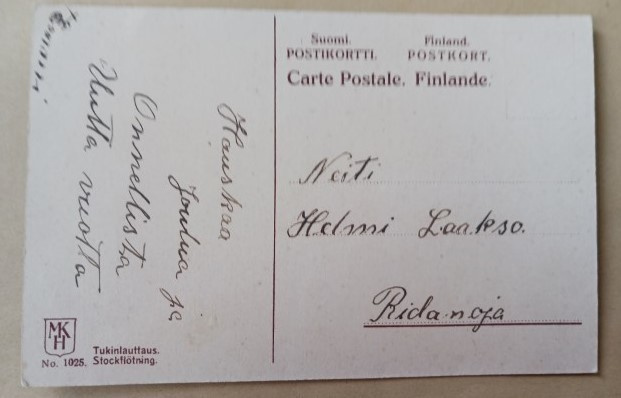 Hauskaa
Joulua ja
Onnellista
Uutta vuotta
MK
H
No. 1025.
Tukinlauttaus.
Stockflötning.
Suomi.
POSTIKORTTI.
Finland.
POSTKORT.
Carte Postale. Finlande.
Neiti
Helmi Laakso.
Ridanoja